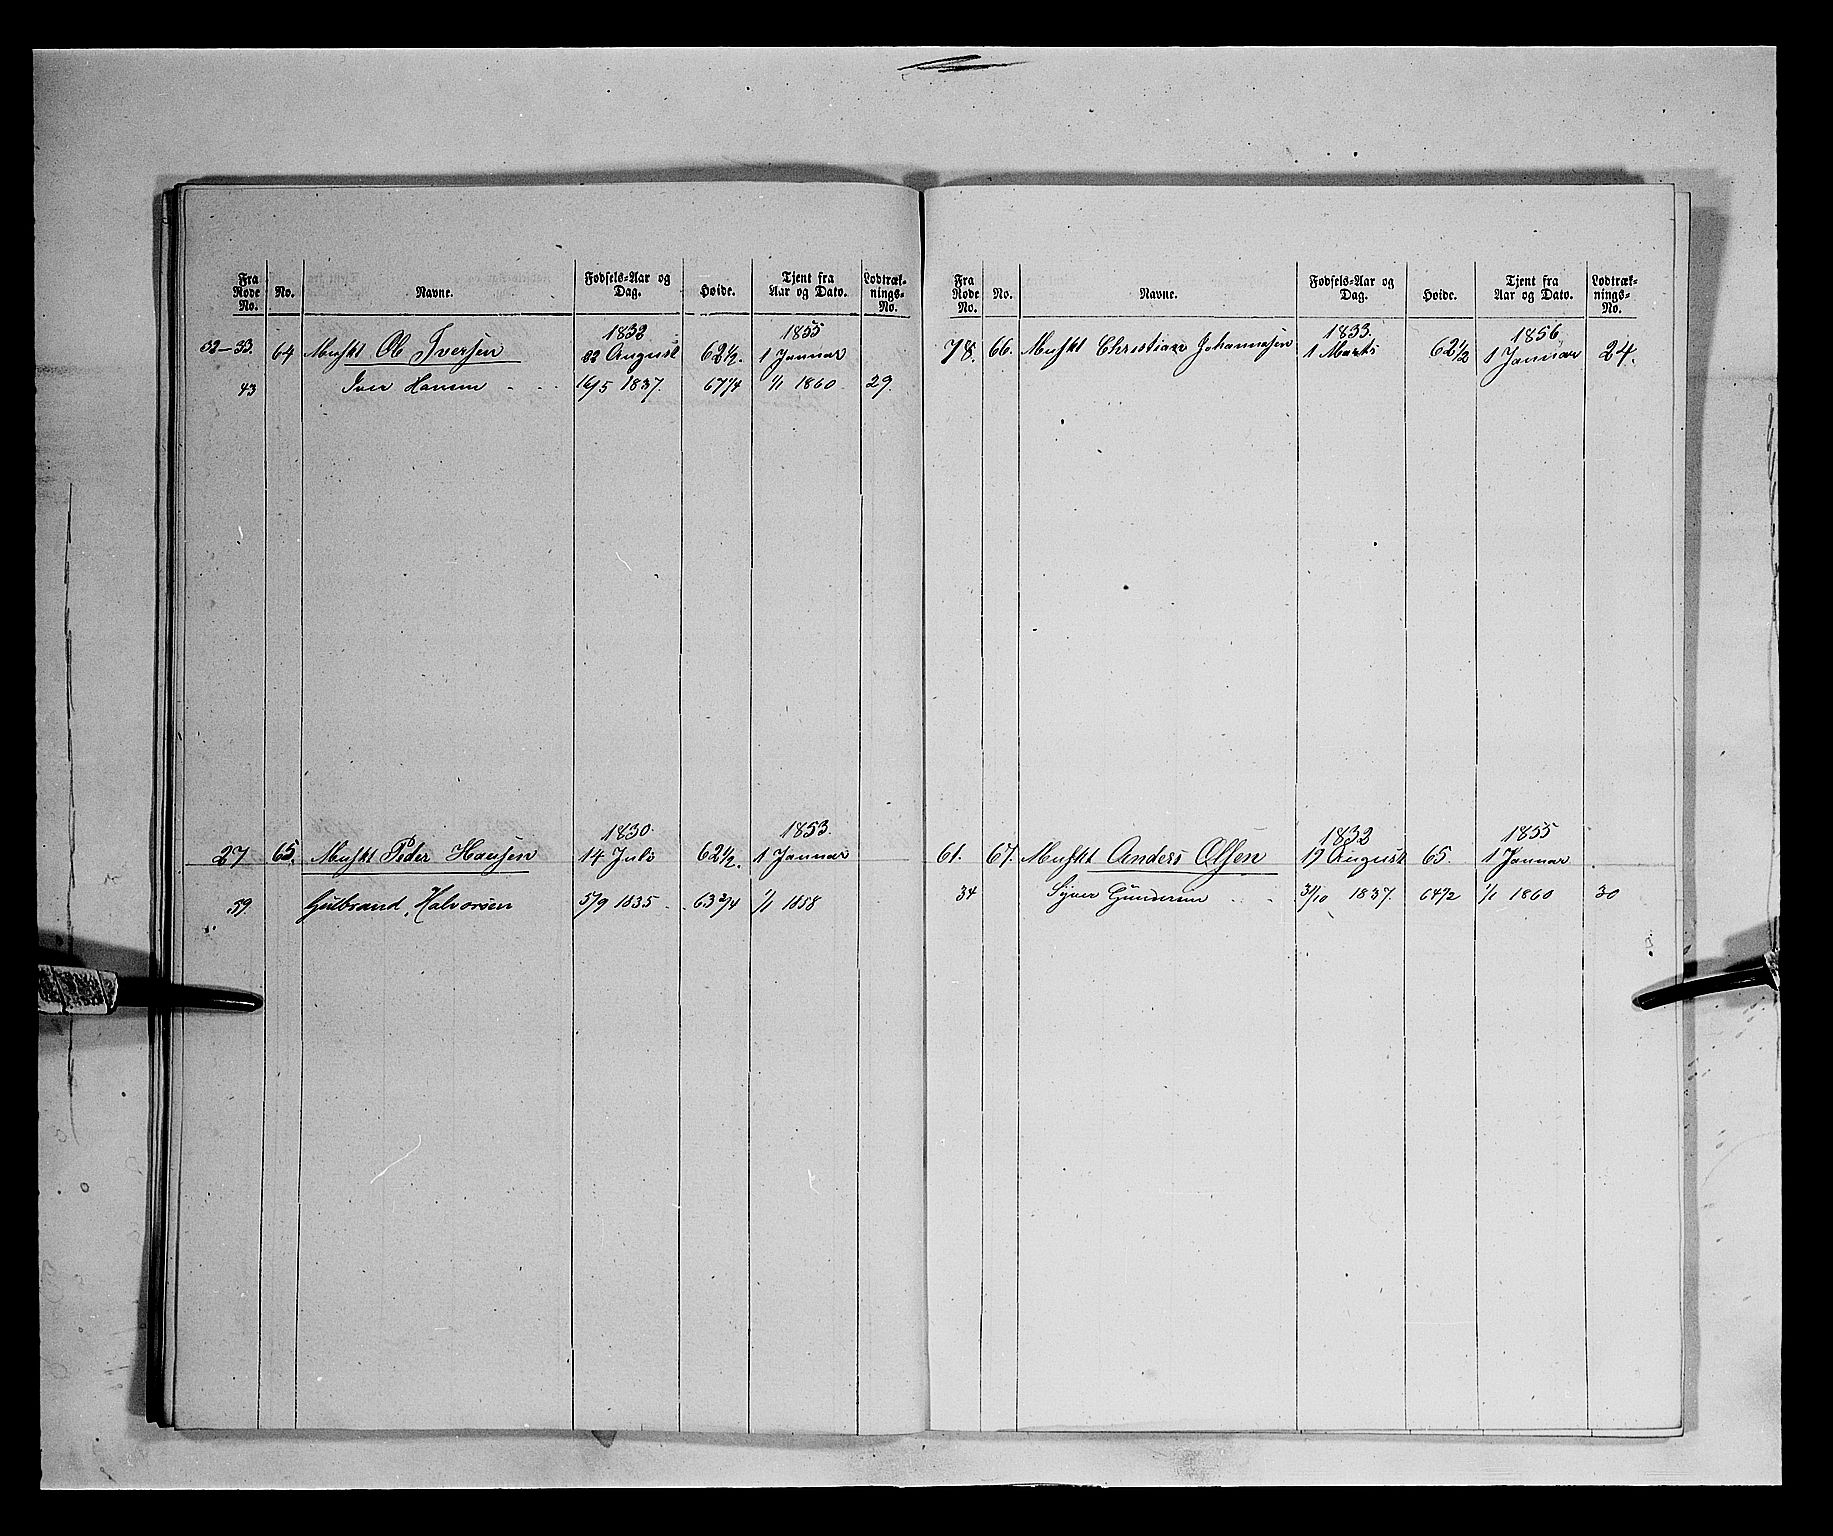 Fra Rode No. No. Navne. Fødsels-Aar og Dag. Høide. Tjent fra Aar og Dato. Lodtræk-nings-No.
1832 1855
32–33. 64 Muskt Ole Iversen 22 August 62 1/2. 1 Januar
43 Iver Hansen 16/5 1837. 67 1/4 1/1 1860. 29.
1830. 1853.
27 65. Muskt Peder Hansen 14 Juli 62 1/2. 1 Januar
59. Gulbrand Halvorsen 5/9 1835 63 3/4 1/1 1858
Fra Rode No. No. Navne. Fødsels-Aar og Dag. Høide. Tjent fra Aar og Dato. Lodtræk-nings-No.
1833. 1856
78. 66. Muskt Christian Johannesen 1 Marts 62 1/2 1 Januar 24.
1832 1855
61. 67. Muskt Anders Olsen 19 August 65. 1 Januar
34 Syver Gundersen 31/10 1837. 64 1/2 1/1 1860 30